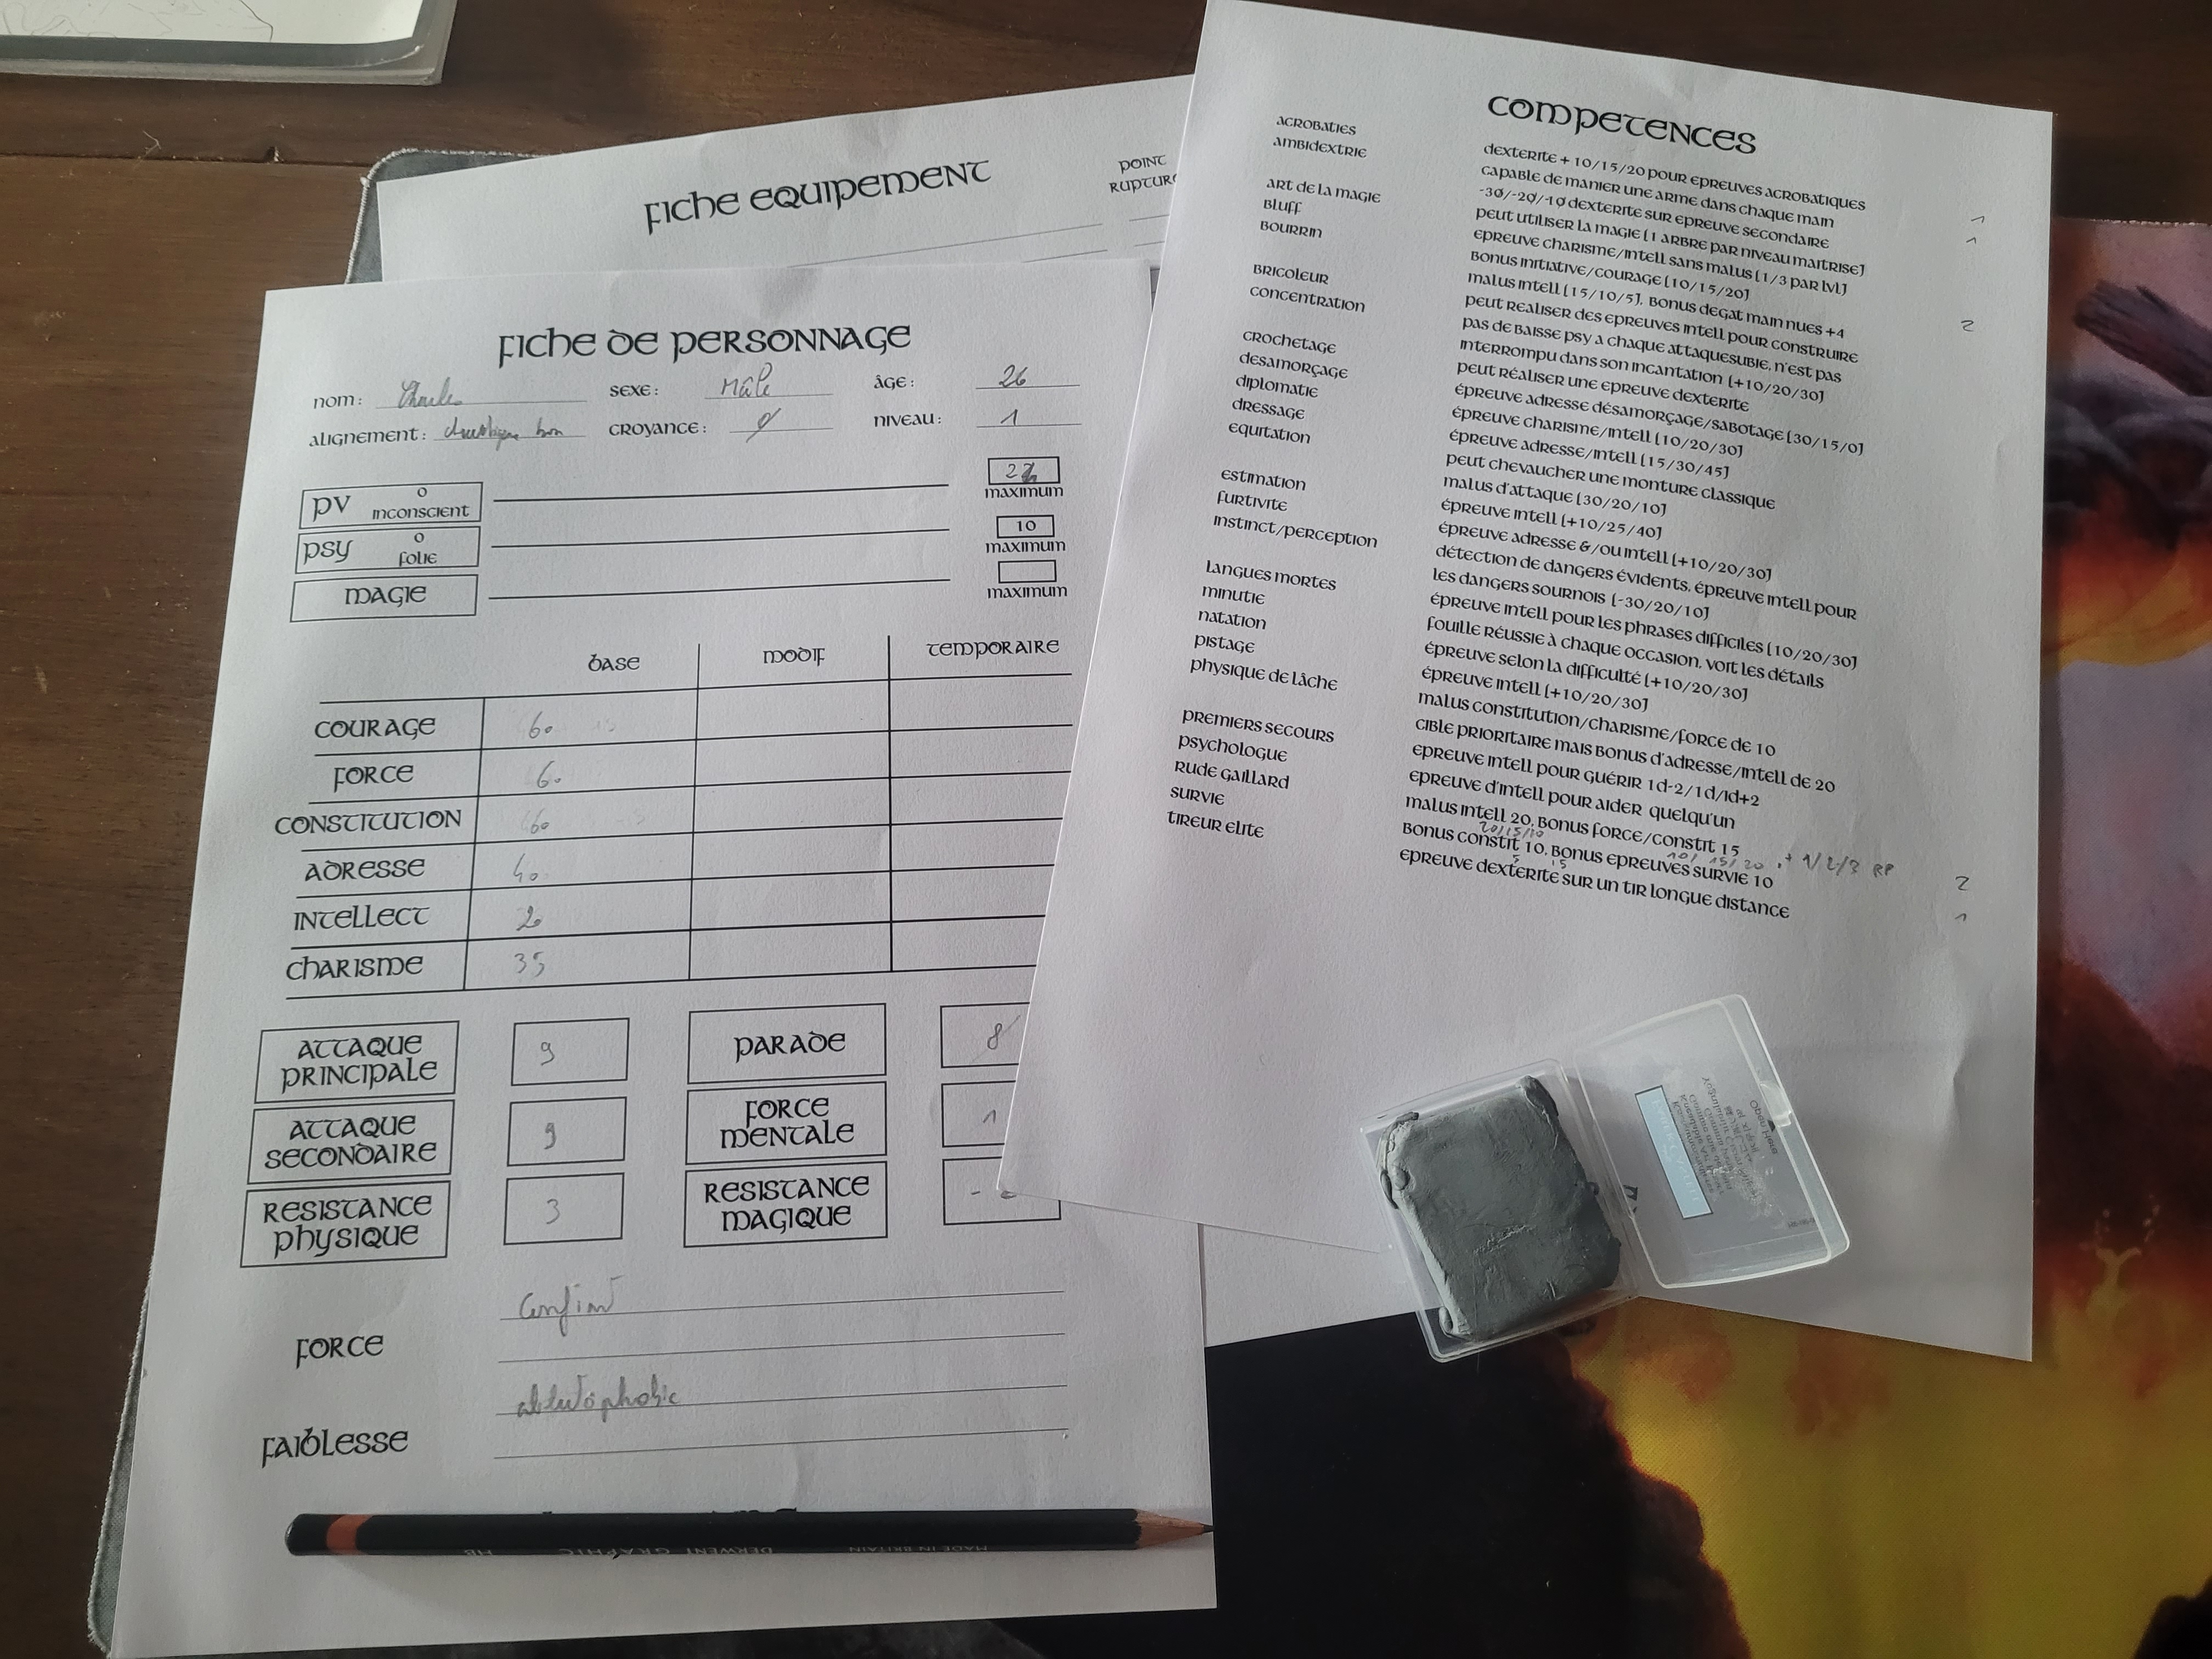 FICHE EQUIPEMENT
POINT
RUPTURE
FICHE DE PERSONNAGE
NOM: Charles SEXE: Mâle ÂGE: 26
ALIGNEMENT: chaotique bon CROYANCE: NIVEAU: 1
PV 0 INCONSCIENT MAXIMUM
PSY 0 FOLIE 10 MAXIMUM
MAGIE MAXIMUM
BASE MODIF TEMPORAIRE
COURAGE 60
FORCE 60
CONSTITUTION 60
ADRESSE 40
INTELLECT 20
CHARISME 35
ATTAQUE PRINCIPALE 9 PARADE 8
ATTAQUE SECONDAIRE 9 FORCE MENTALE 1
RESISTANCE PHYSIQUE 3 RESISTANCE MAGIQUE -
FORCE
FAIBLESSE ablutophobie
MADE IN BRITAIN DERWENT GRAPHIC HB
COMPETENCES
ACROBATIES DEXTERITE + 10/15/20 POUR EPREUVES ACROBATIQUES
AMBIDEXTRIE CAPABLE DE MANIER UNE ARME DANS CHAQUE MAIN 1
-30/-20/-10 DEXTERITE SUR EPREUVE SECONDAIRE 1
ART DE LA MAGIE PEUT UTILISER LA MAGIE [1 ARBRE PAR NIVEAU MAITRISE]
BLUFF EPREUVE CHARISME/INTELL SANS MALUS [1/3 PAR LVL]
BOURRIN BONUS INITIATIVE/COURAGE [10/15/20]
MALUS INTELL [15/10/5]. BONUS DEGAT MAIN NUES +4 2
BRICOLEUR PEUT REALISER DES EPREUVES INTELL POUR CONSTRUIRE
CONCENTRATION PAS DE BAISSE PSY A CHAQUE ATTAQUESUBIE, N'EST PAS
INTERROMPU DANS SON INCANTATION [+10/20/30]
CROCHETAGE PEUT RÉALISER UNE EPREUVE DEXTERITE
DESAMORÇAGE ÉPREUVE ADRESSE DÉSAMORÇAGE/SABOTAGE [30/15/0]
DIPLOMATIE ÉPREUVE CHARISME/INTELL [10/20/30]
DRESSAGE ÉPREUVE ADRESSE/INTELL [15/30/45]
EQUITATION PEUT CHEVAUCHER UNE MONTURE CLASSIQUE
MALUS D'ATTAQUE [30/20/10]
ESTIMATION ÉPREUVE INTELL [+10/25/40]
FURTIVITE ÉPREUVE ADRESSE &/OU INTELL [+10/20/30]
INSTINCT/PERCEPTION DÉTECTION DE DANGERS ÉVIDENTS. ÉPREUVE INTELL POUR
LES DANGERS SOURNOIS [-30/20/10]
LANGUES MORTES ÉPREUVE INTELL POUR LES PHRASES DIFFICILES [10/20/30]
MINUTIE FOUILLE RÉUSSIE À CHAQUE OCCASION. VOIT LES DÉTAILS
NATATION ÉPREUVE SELON LA DIFFICULTÉ [+10/20/30]
PISTAGE ÉPREUVE INTELL [+10/20/30]
PHYSIQUE DE LÂCHE MALUS CONSTITUTION/CHARISME/FORCE DE 10
CIBLE PRIORITAIRE MAIS BONUS D'ADRESSE/INTELL DE 20
PREMIERS SECOURS EPREUVE INTELL POUR GUÉRIR 1D-2/1D/1D+2
PSYCHOLOGUE EPREUVE D'INTELL POUR AIDER QUELQU'UN
RUDE GAILLARD MALUS INTELL 20, BONUS FORCE/CONSTIT 15
20/15/10 10/ 15/ 20 + 1/2/3 RP
SURVIE BONUS CONSTIT 10. BONUS EPREUVES SURVIE 10 2
5 15
TIREUR ELITE EPREUVE DEXTERITE SUR UN TIR LONGUE DISTANCE 1